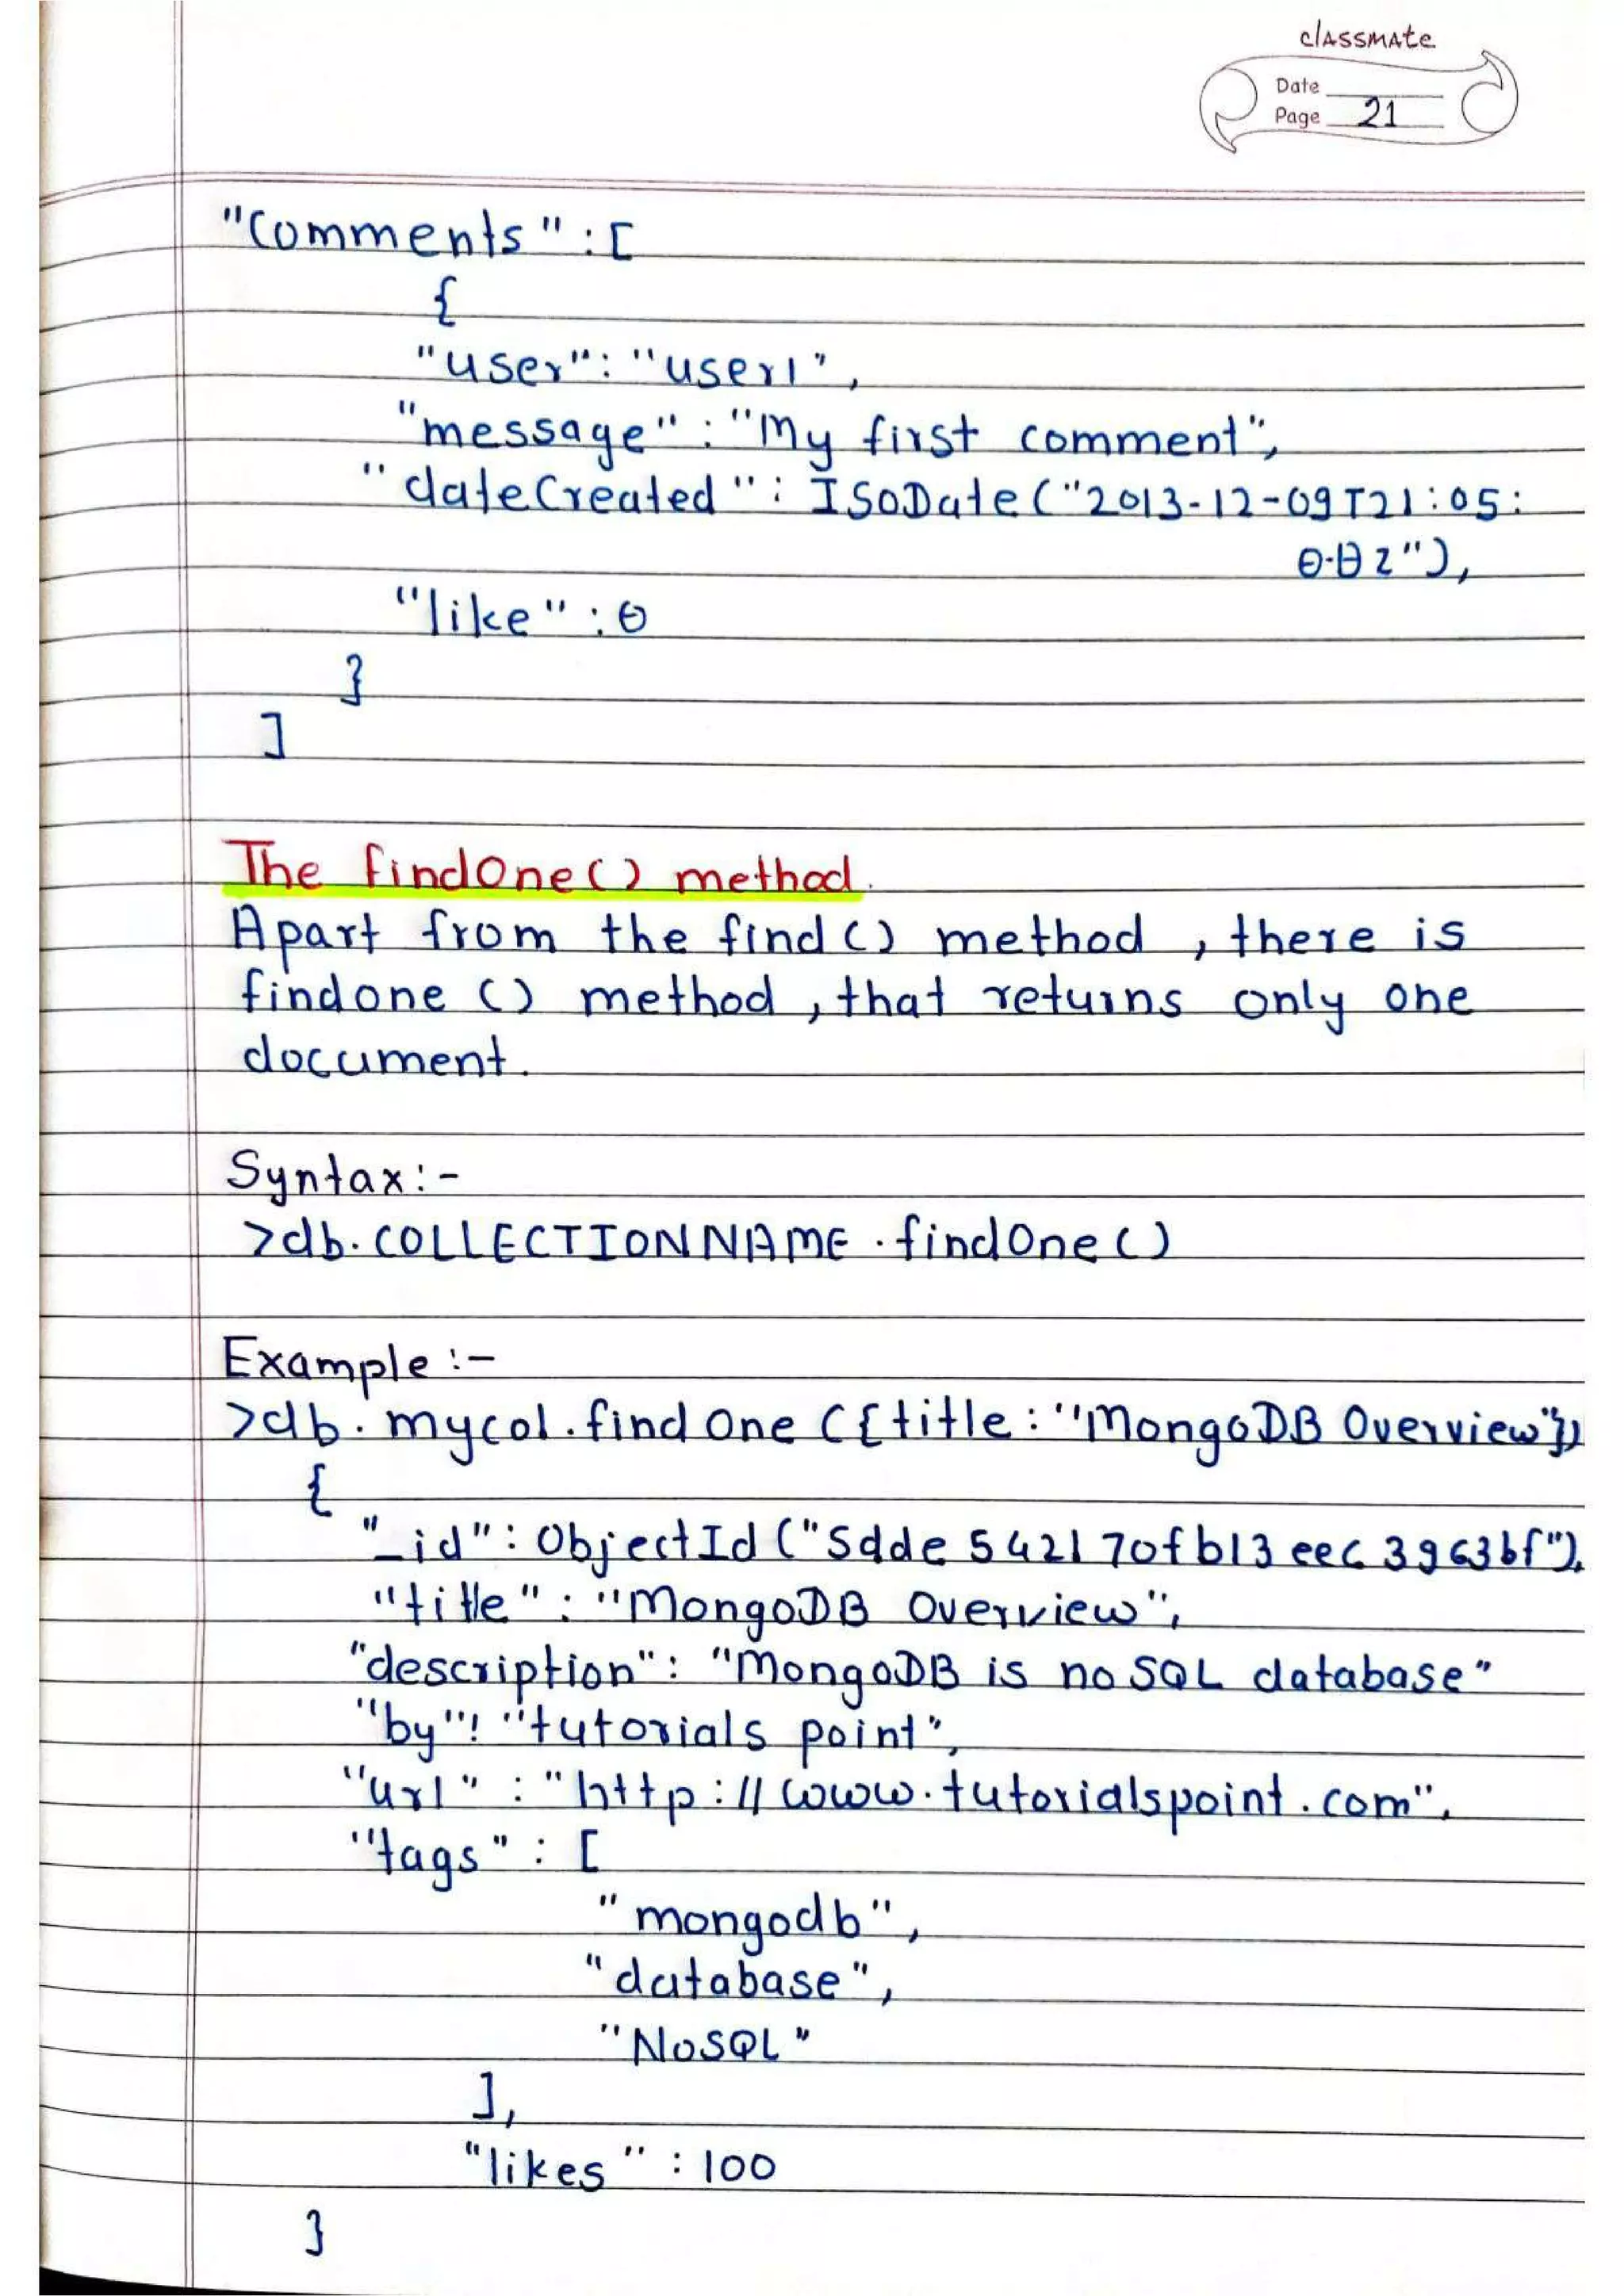 classmate
Date
Page 21
"Comments" : [
{
"user": "user1",
"message" : "My first comment",
"dateCreated" : ISODate ("2013-12-09T21:05:
0.0Z"),
"like" : 0
}
]
The findOne() method.
Apart from the find () method , there is
findone () method , that returns only one
document.
Syntax:-
>db.COLLECTIONNAME .findOne()
Example :-
>db.mycol.findOne ({title : "MongoDB Overview"})
{
"_id" : ObjectId ("5dde542170fb13eec3963bf"),
"title" : "MongoDB Overview",
"description" : "MongoDB is no SQL database"
"by": "tutorials point",
"url" : "http://www.tutorialspoint.com",
"tags" : [
"mongodb",
"database",
"NoSQL"
],
"likes" : 100
}